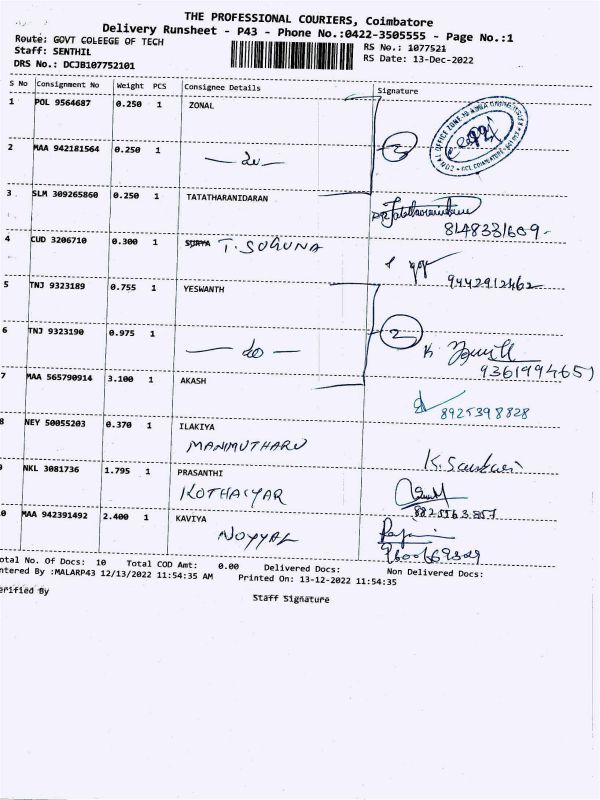 THE PROFESSIONAL COURIERS, Coimbatore
Delivery Runsheet - P43 - Phone No.:0422-3505555 - Page No.:1
Route: GOVT COLEEGE OF TECH
RS No.: 1077521
Staff: SENTHIL
RS Date: 13-Dec-2022
DRS No.: DCJB107752101
S No Consignment No Weight PCS Consignee Details Signature
1 POL 9564687 0.250 1 ZONAL
2 MAA 942181564 0.250 1
— do —
3 SLM 309265860 0.250 1 TATATHARANIDARAN
8148331609
4 CUD 3206710 0.300 1 SURYA T. SUGUNA
9442912462
5 TNJ 9323189 0.755 1 YESWANTH
6 TNJ 9323190 0.975 1
2
— do —
K.
9361994651
7 MAA 565790914 3.100 1 AKASH
8925398828
8 NEY 50055203 0.370 1 ILAKIYA
MANIMUTHARU
K. Sankari
9 NKL 3081736 1.795 1 PRASANTHI
KOTHAIYAR
8825563857
0 MAA 942391492 2.400 1 KAVIYA
NOYYAL
otal No. Of Docs: 10 Total COD Amt: 0.00 Delivered Docs: Non Delivered Docs:
ntered By :MALARP43 12/13/2022 11:54:35 AM Printed On: 13-12-2022 11:54:35
erified By
Staff Signature